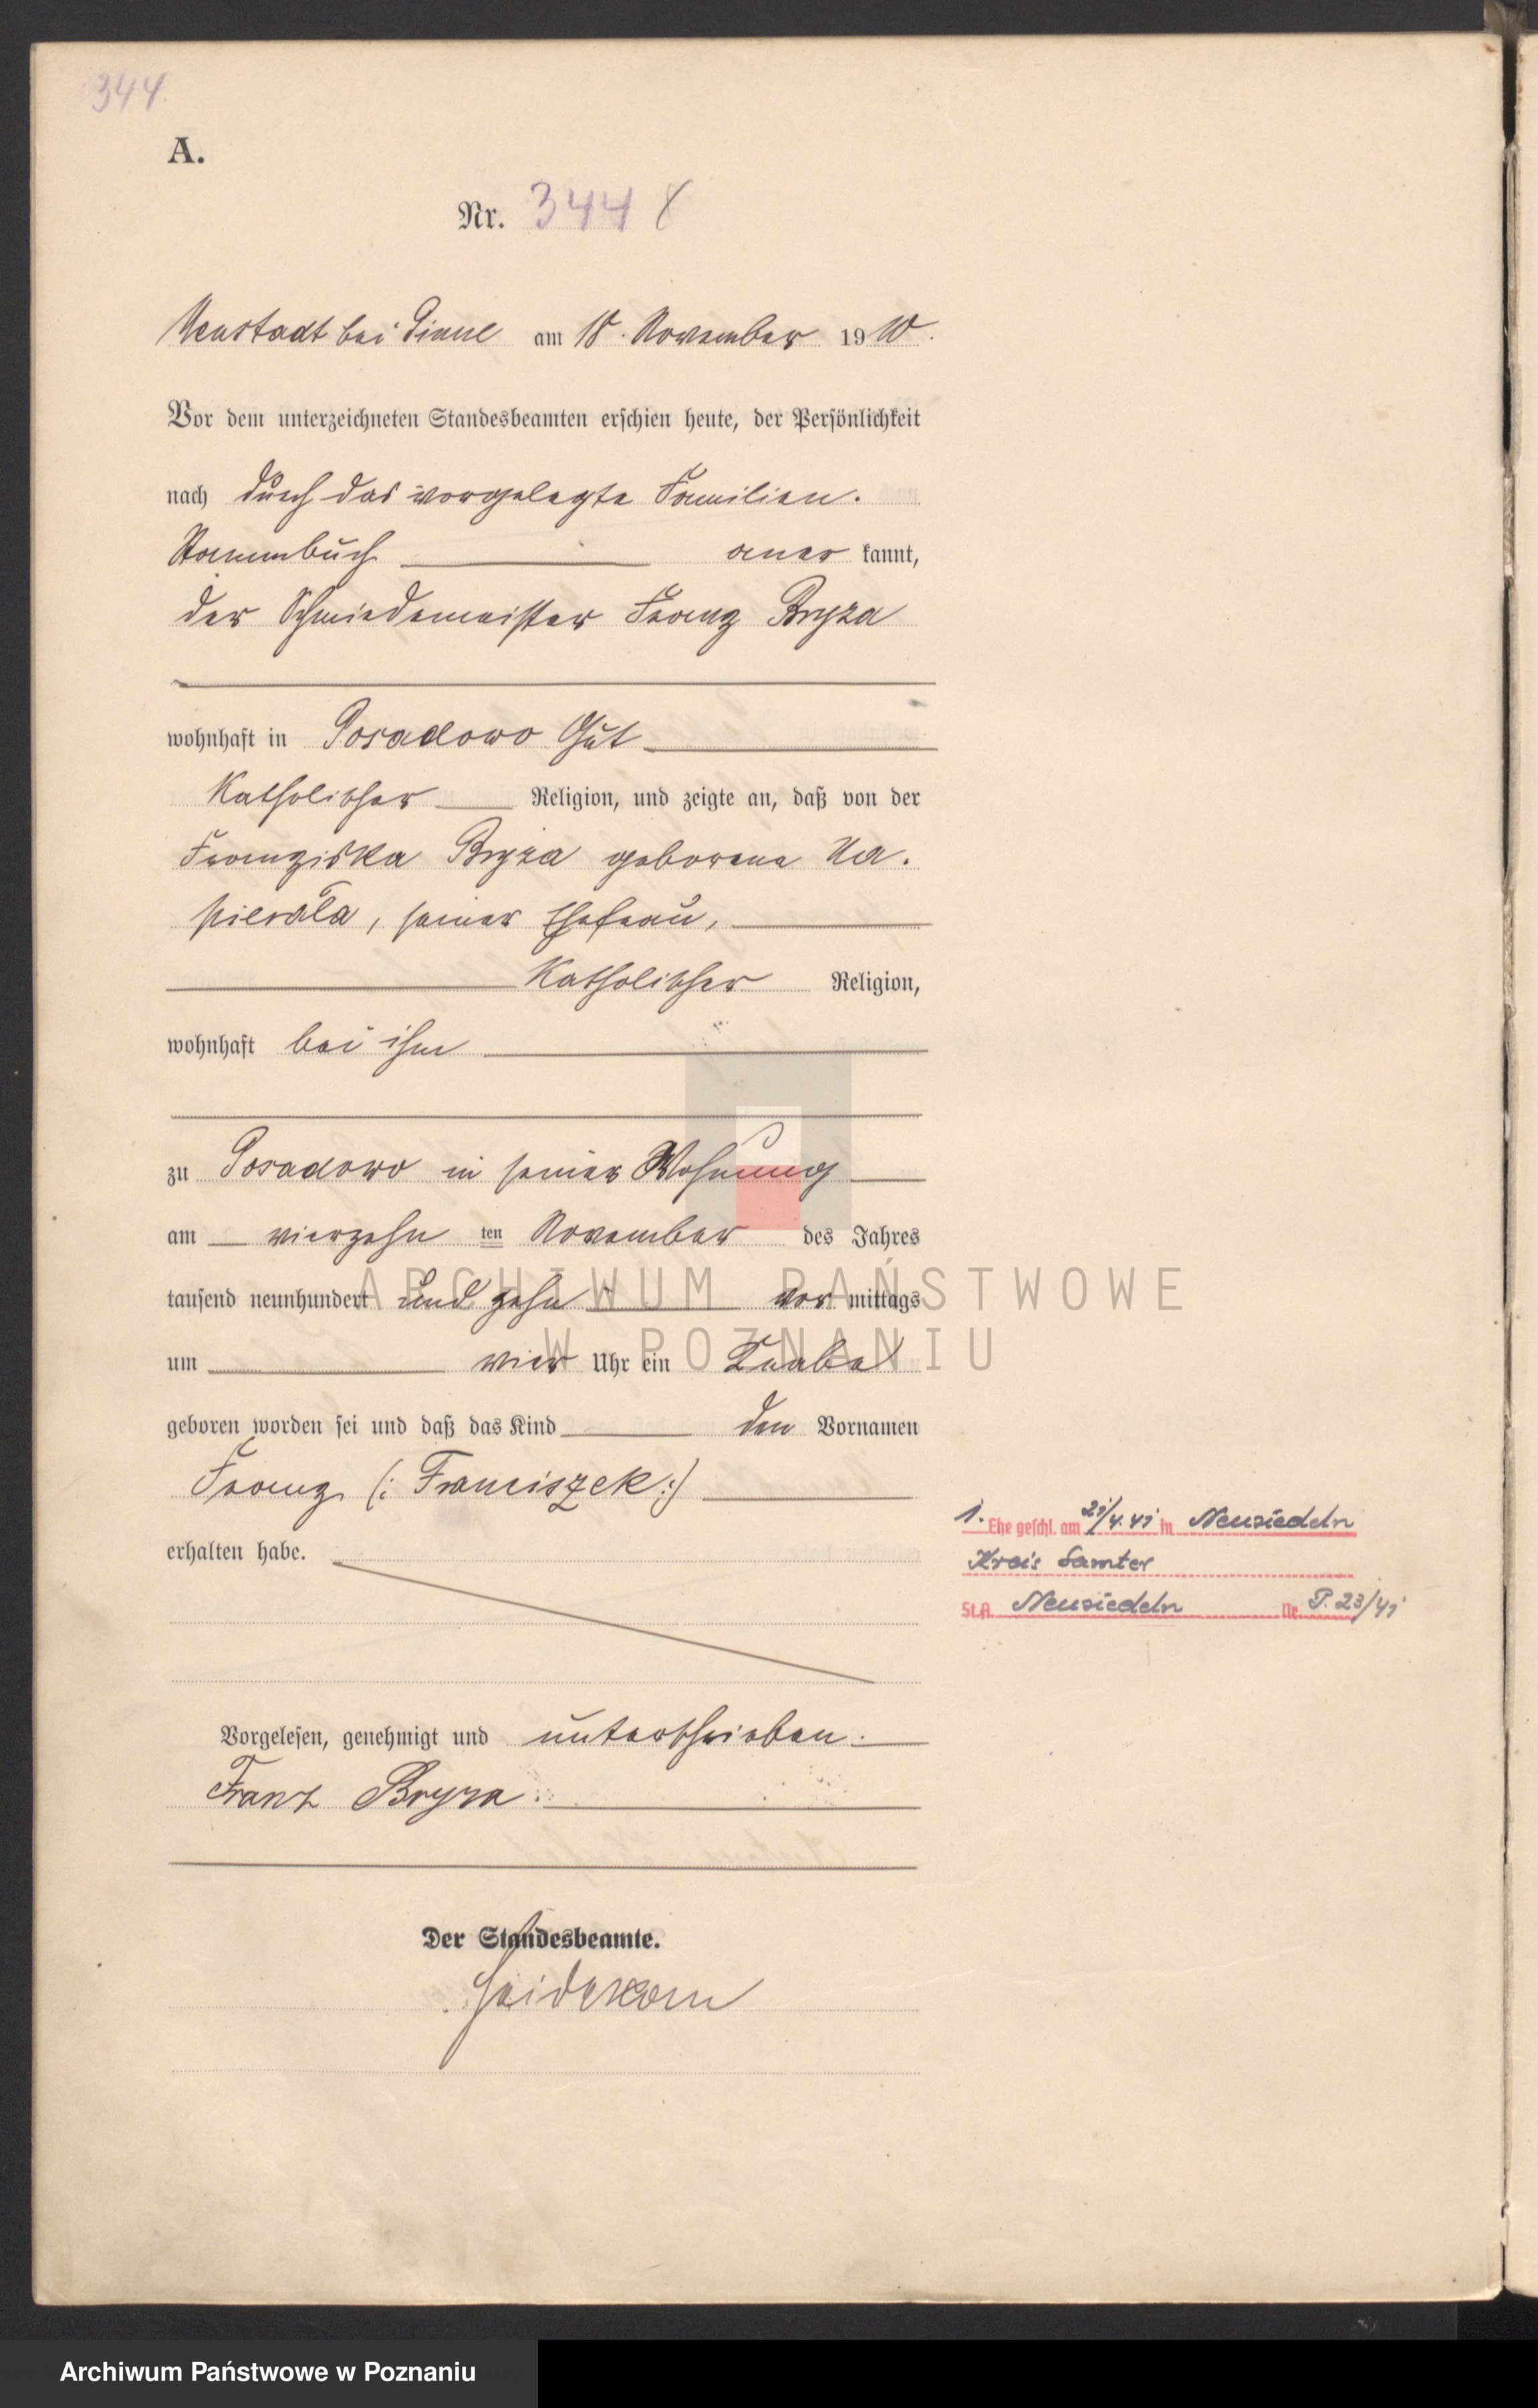 344.
A.
Nr. 344
Neustadt bei Pinne am 18. November 1910.
Vor dem unterzeichneten Standesbeamten erschien heute, der Persönlichkeit
nach durch das vorgelegte Familien-
Stammbuch aner kannt,
der Schmiedemeister Franz Bryza
wohnhaft in Posadowo Gut
Katholischer Religion, und zeigte an, daß von der
Franziska Bryza geborene Na-
pierala, seiner Ehefrau,
Katholischer Religion,
wohnhaft bei ihm
zu Posadowo in seiner Wohnung
am vierzehn ten November des Jahres
tausend neunhundert und zehn vor mittags
um vier Uhr ein Knabe
geboren worden sei und daß das Kind den Vornamen
Franz (: Franciszek :)
erhalten habe.
1. Ehe geschl. am 21/4.41 in Neusiedeln
Kreis Samter
St.A. Neusiedeln Nr. P. 23/41
Vorgelesen, genehmigt und unterschrieben.
Franz Bryza.
Der Standesbeamte.
ARCHIWUM PAŃSTWOWE
W POZNANIU
Archiwum Państwowe w Poznaniu